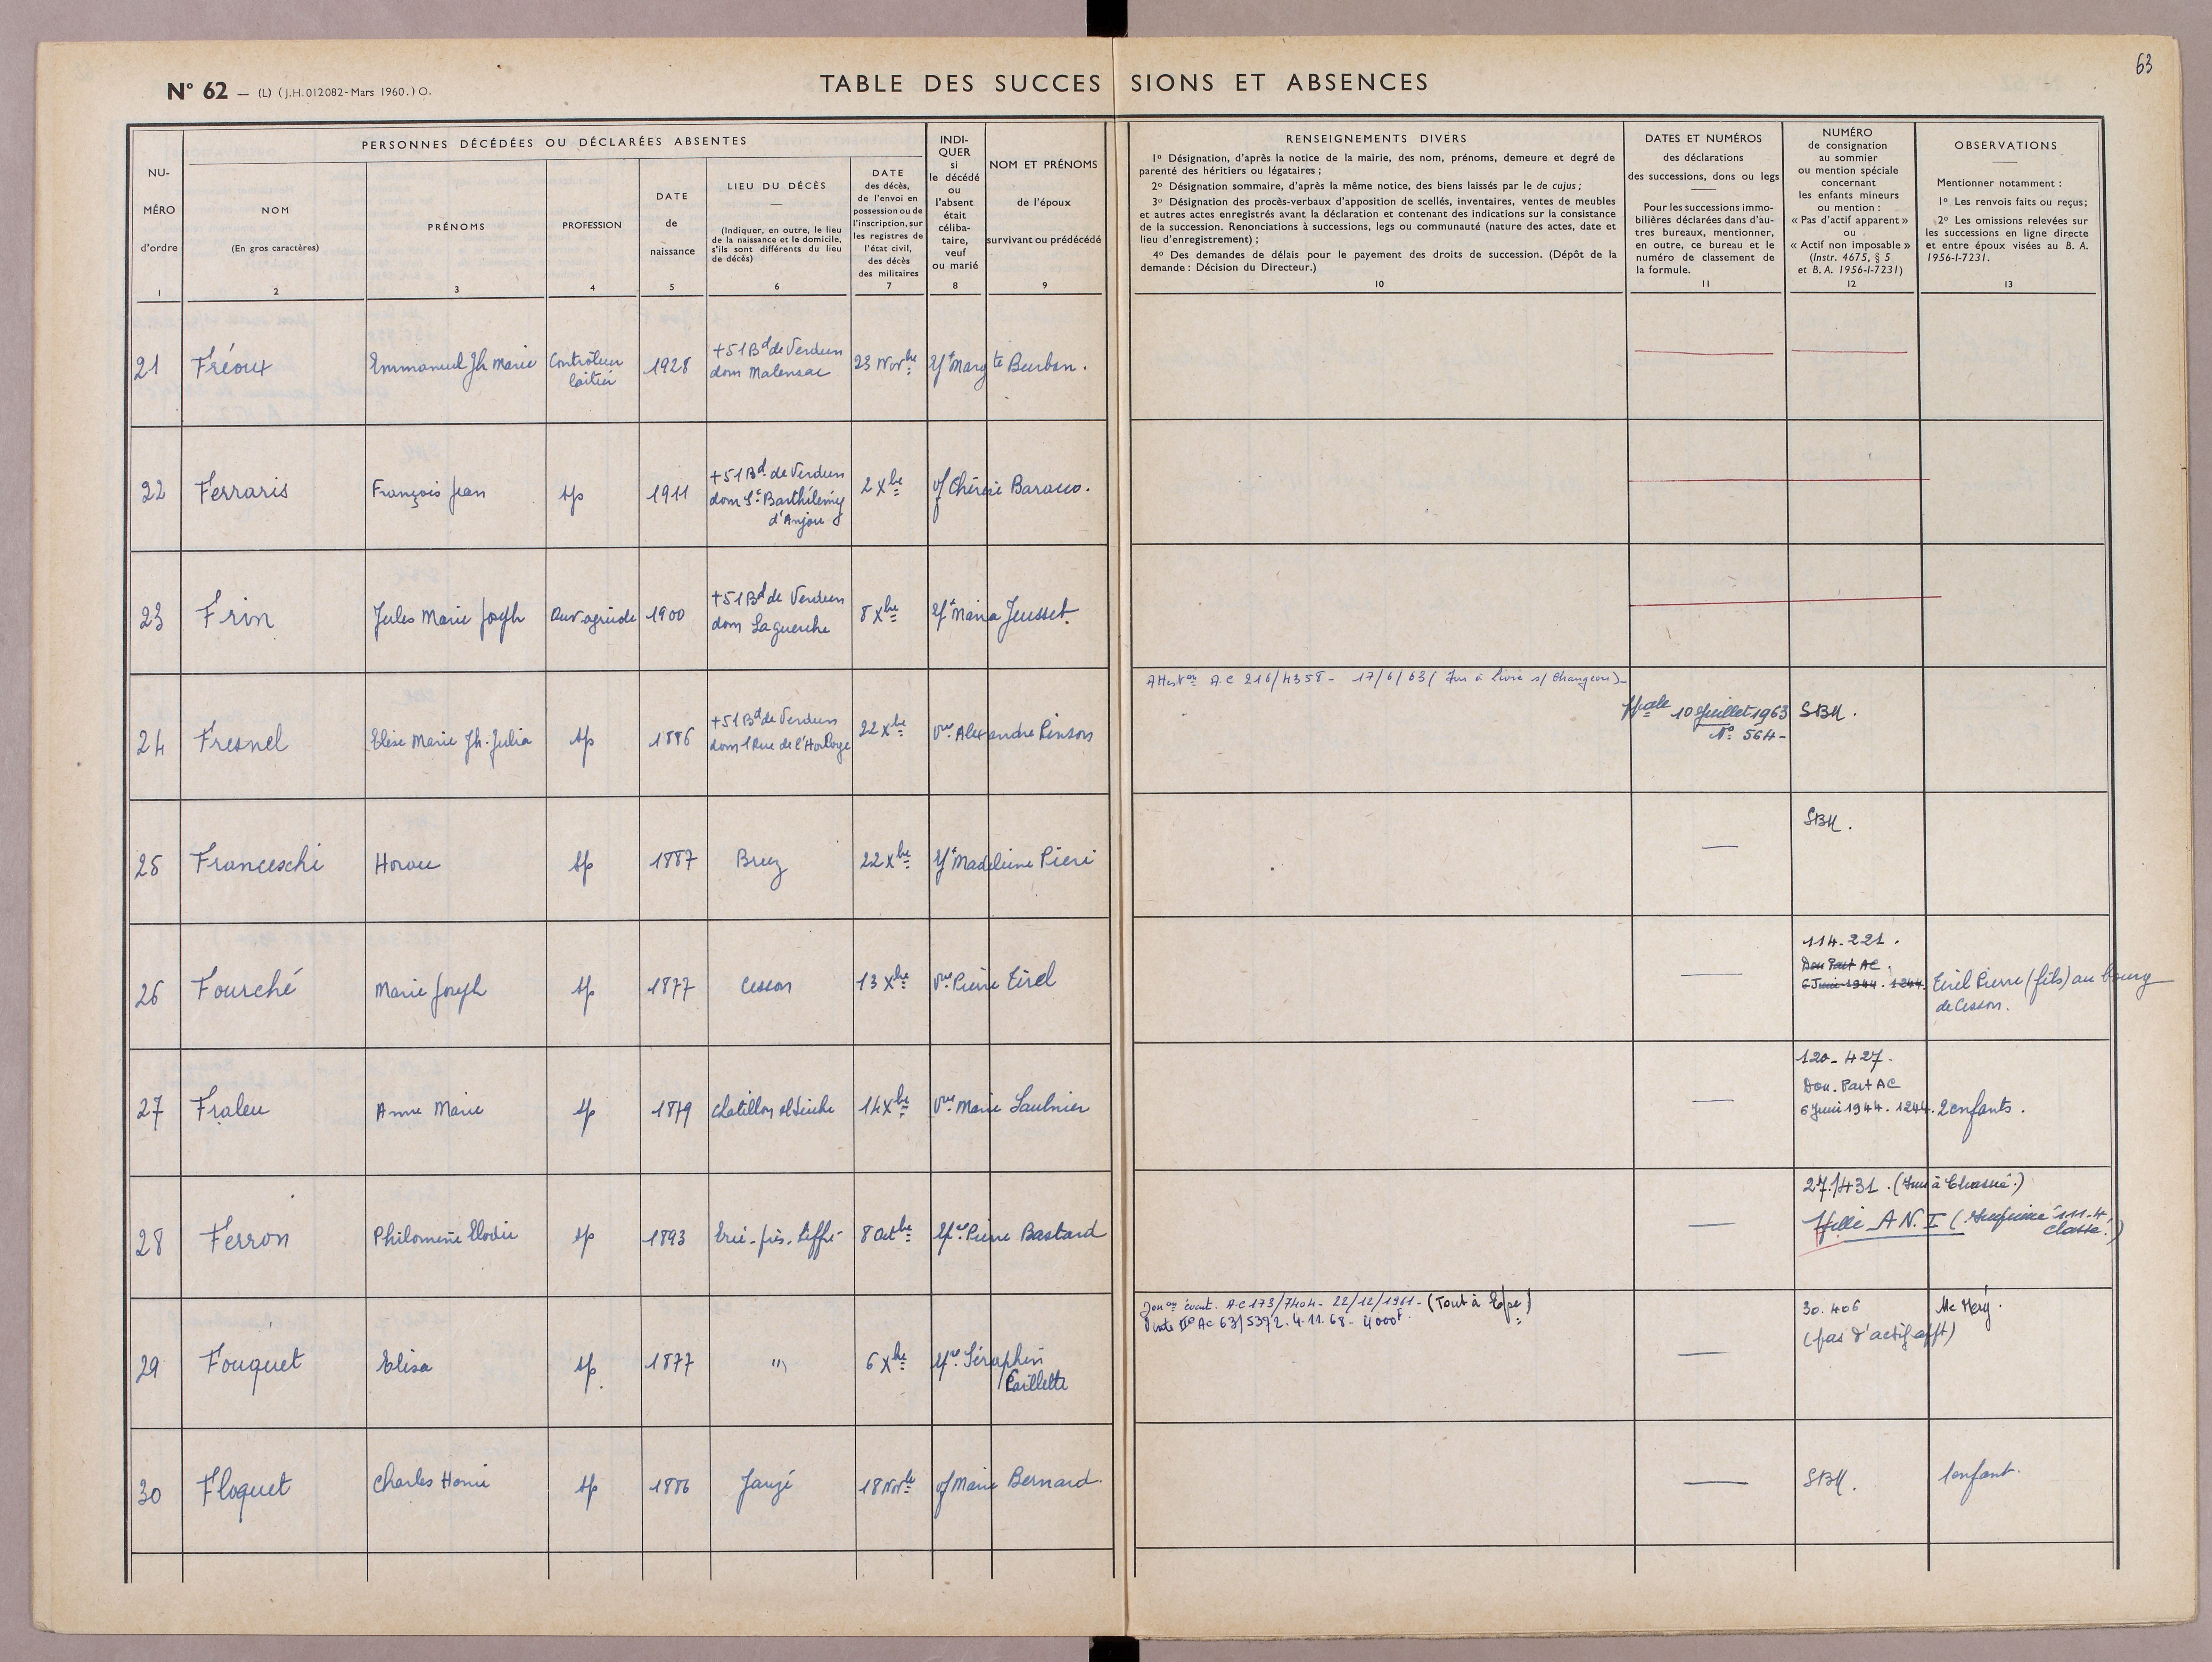 63
N° 62 — (L) (J.H. 012082-Mars 1960.) O.
TABLE DES SUCCESSIONS ET ABSENCES
NU-
MÉRO
d'ordre
1
PERSONNES DÉCÉDÉES OU DÉCLARÉES ABSENTES
NOM
(En gros caractères)
2
PRÉNOMS
3
PROFESSION
4
DATE
de
naissance
5
LIEU DU DÉCÈS
(Indiquer, en outre, le lieu
de la naissance et le domicile,
s'ils sont différents du lieu
de décès)
6
DATE
des décès,
de l'envoi en
possession ou de
l'inscription, sur
les registres de
l'état civil,
des décès
des militaires
7
INDI-
QUER
si
le décédé
ou
l'absent
était
céliba-
taire,
veuf
ou marié
8
NOM ET PRÉNOMS
de l'époux
survivant ou prédécédé
9
RENSEIGNEMENTS DIVERS
1° Désignation, d'après la notice de la mairie, des nom, prénoms, demeure et degré de
parenté des héritiers ou légataires ;
2° Désignation sommaire, d'après la même notice, des biens laissés par le de cujus ;
3° Désignation des procès-verbaux d'apposition de scellés, inventaires, ventes de meubles
et autres actes enregistrés avant la déclaration et contenant des indications sur la consistance
de la succession. Renonciations à successions, legs ou communauté (nature des actes, date et
lieu d'enregistrement) ;
4° Des demandes de délais pour le payement des droits de succession. (Dépôt de la
demande : Décision du Directeur.)
10
DATES ET NUMÉROS
des déclarations
des successions, dons ou legs
Pour les successions immo-
bilières déclarées dans d'au-
tres bureaux, mentionner,
en outre, ce bureau et le
numéro de classement de
la formule.
11
NUMÉRO
de consignation
au sommier
ou mention spéciale
concernant
les enfants mineurs
ou mention :
« Pas d'actif apparent »
ou
« Actif non imposable »
(Instr. 4675, § 5
et B. A. 1956-I-7231)
12
OBSERVATIONS
Mentionner notamment :
1° Les renvois faits ou reçus ;
2° Les omissions relevées sur
les successions en ligne directe
et entre époux visées au B. A.
1956-I-7231.
13
21 Fréoux Emmanuel Jh Marie Contrôleur
laitier
1928
+ 51 Bd de Verdun
dom Malansac
23 Novbre
Margte Burban.
22 Ferraris François Jean sp 1911
+ 51 Bd de Verdun
dom St Barthélémy
d'Anjou
2 Xbre
23 Frin Jules Marie Joseph Ouv agricole 1900
+ 51 Bd de Verdun
dom La guerche
8 Xbre
Maria Jeusset.
24 Fresnel Elise Marie Jh. Julia sp 1886
+ 51 Bd de Verdun
dom 1 Rue de l'Horloge
22 Xbre vve Alexandre Pinson
A.C 216/4358 - 17/6/63
10 Juillet 1963
N° 564 -
SBM.
25 Franceschi Horace sp 1887 Bruz 22 Xbre Madeleine Pieri
SBM.
26 Fourché Marie Joseph sp 1877 Cesson 13 Xbre vve Pierre Tirel
114.221.
Don Part AC.
6 Juin 1944. 1244.
Tirel Pierre (fils) au bourg
de Cesson.
27 Fraleu Anne Marie sp 1879 Chatillon s/ Seiche 14 Xbre vve Marie Saulnier
120-427.
Don. Part AC
6 Juin 1944. 1244.
2 enfants.
28 Ferron Philomène Elodie sp 1893 Ercé-près-Liffré 8 Octbre Pierre Bastard
27/431.
A N. I
classe.)
29 Fouquet Elisa sp. 1877 " 6 Xbre Séraphin
Paillette
Don on évent. AC 173/7404 - 22/12/1961 -
AC 63/5392. 4.11.68 - 4000F.
30.406
(pas d'actif appt)
Me Méry.
30 Floquet Charles Henri sp 1886 Janzé 18 Novbre vf Marie Bernard.
SBM.
1 enfant.